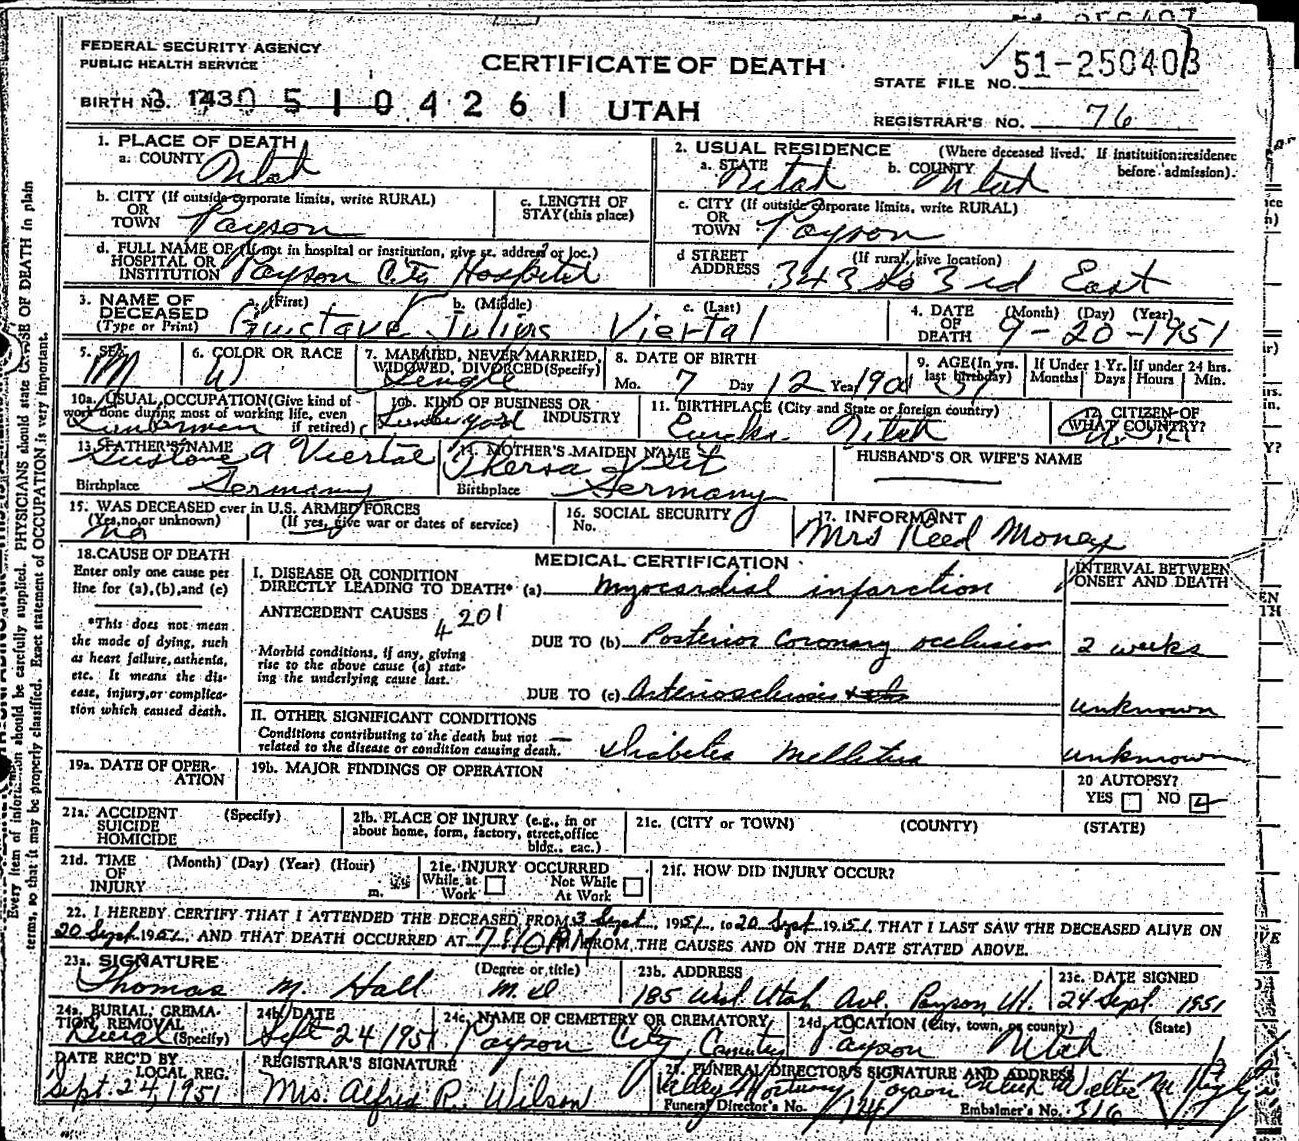 FEDERAL SECURITY AGENCY
PUBLIC HEALTH SERVICE
CERTIFICATE OF DEATH
STATE FILE NO. 51-250403
BIRTH NO. 1430 5 1 0 4 2 6 1 UTAH
REGISTRAR'S NO. 76
1. PLACE OF DEATH
a. COUNTY Utah
2. USUAL RESIDENCE (Where deceased lived. If institution: residence before admission).
a. STATE Utah b. COUNTY Utah
b. CITY (If outside corporate limits, write RURAL) OR TOWN Payson
c. LENGTH OF STAY (this place)
c. CITY (If outside corporate limits, write RURAL) OR TOWN Payson
d. FULL NAME OF (If not in hospital or institution, give st. address or loc.) HOSPITAL OR INSTITUTION Payson City Hospital
d STREET ADDRESS (If rural, give location) 343 So 3rd East
3. NAME OF DECEASED (Type or Print)
a. (First) Gustave b. (Middle) Julius c. (Last) Viertal
4. DATE OF DEATH (Month) (Day) (Year) 9-20-1951
5. SEX M
6. COLOR OR RACE W
7. MARRIED, NEVER MARRIED, WIDOWED, DIVORCED (Specify) Single
8. DATE OF BIRTH Mo. 7 Day 12 Year 1900
9. AGE (In yrs. last birthday) 51
If Under 1 Yr. Months Days
If under 24 hrs. Hours Min.
10a. USUAL OCCUPATION (Give kind of work done during most of working life, even if retired) Lumberman
10b. KIND OF BUSINESS OR INDUSTRY Lumber yard
11. BIRTHPLACE (City and State or foreign country) Eureka. Utah
12. CITIZEN OF WHAT COUNTRY?
13. FATHER'S NAME Gustave A Viertal
Birthplace Germany
14. MOTHER'S MAIDEN NAME Thersa Veit
Birthplace Germany
HUSBAND'S OR WIFE'S NAME
15. WAS DECEASED ever in U.S. ARMED FORCES
(Yes, no, or unknown) No (If yes, give war or dates of service)
16. SOCIAL SECURITY No.
17. INFORMANT Mrs Reed Money
18. CAUSE OF DEATH
Enter only one cause per line for (a), (b), and (c)
*This does not mean the mode of dying, such as heart failure, asthenia, etc. It means the disease, injury, or complication which caused death.
MEDICAL CERTIFICATION
INTERVAL BETWEEN ONSET AND DEATH
I. DISEASE OR CONDITION DIRECTLY LEADING TO DEATH* (a) Myocardial infarction
ANTECEDENT CAUSES 4201
Morbid conditions, if any, giving rise to the above cause (a) stating the underlying cause last.
DUE TO (b) Posterior Coronary occlusion 2 weeks
DUE TO (c) Arteriosclerosis unknown
II. OTHER SIGNIFICANT CONDITIONS
Conditions contributing to the death but not related to the disease or condition causing death. Diabetes Mellitus unknown
19a. DATE OF OPERATION
19b. MAJOR FINDINGS OF OPERATION
20 AUTOPSY? YES NO
21a. ACCIDENT SUICIDE HOMICIDE (Specify)
21b. PLACE OF INJURY (e.g., in or about home, form, factory, street, office bldg., eac.)
21c. (CITY or TOWN) (COUNTY) (STATE)
21d. TIME OF INJURY (Month) (Day) (Year) (Hour) m.
21e. INJURY OCCURRED While at Work Not While At Work
21f. HOW DID INJURY OCCUR?
22. I HEREBY CERTIFY THAT I ATTENDED THE DECEASED FROM 3 Sept, 1951, to 20 Sept 1951, THAT I LAST SAW THE DECEASED ALIVE ON
20 Sept 1951, AND THAT DEATH OCCURRED AT 7:40 PM FROM THE CAUSES AND ON THE DATE STATED ABOVE.
23a. SIGNATURE (Degree or title) Thomas M. Hall M.D
23b. ADDRESS 185 West Utah Ave. Payson, Ut.
23c. DATE SIGNED 24 Sept 1951
24a. BURIAL, CREMATION, REMOVAL (Specify) Burial
24b. DATE Sept 24 1951
24c. NAME OF CEMETERY OR CREMATORY Payson City Cemetery
24d. LOCATION (City, town, or county) (State) Payson Utah
DATE REC'D BY LOCAL REG. Sept. 24, 1951
REGISTRAR'S SIGNATURE Mrs. Alfred R. Wilson
25. FUNERAL DIRECTOR'S SIGNATURE AND ADDRESS Valley Mortuary Payson Utah
Funeral Director's No. Embalmer's No. 316
Every item of information should be carefully supplied. PHYSICIANS should state CAUSE OF DEATH in plain
terms, so that it may be properly classified. Exact statement of OCCUPATION is very important.